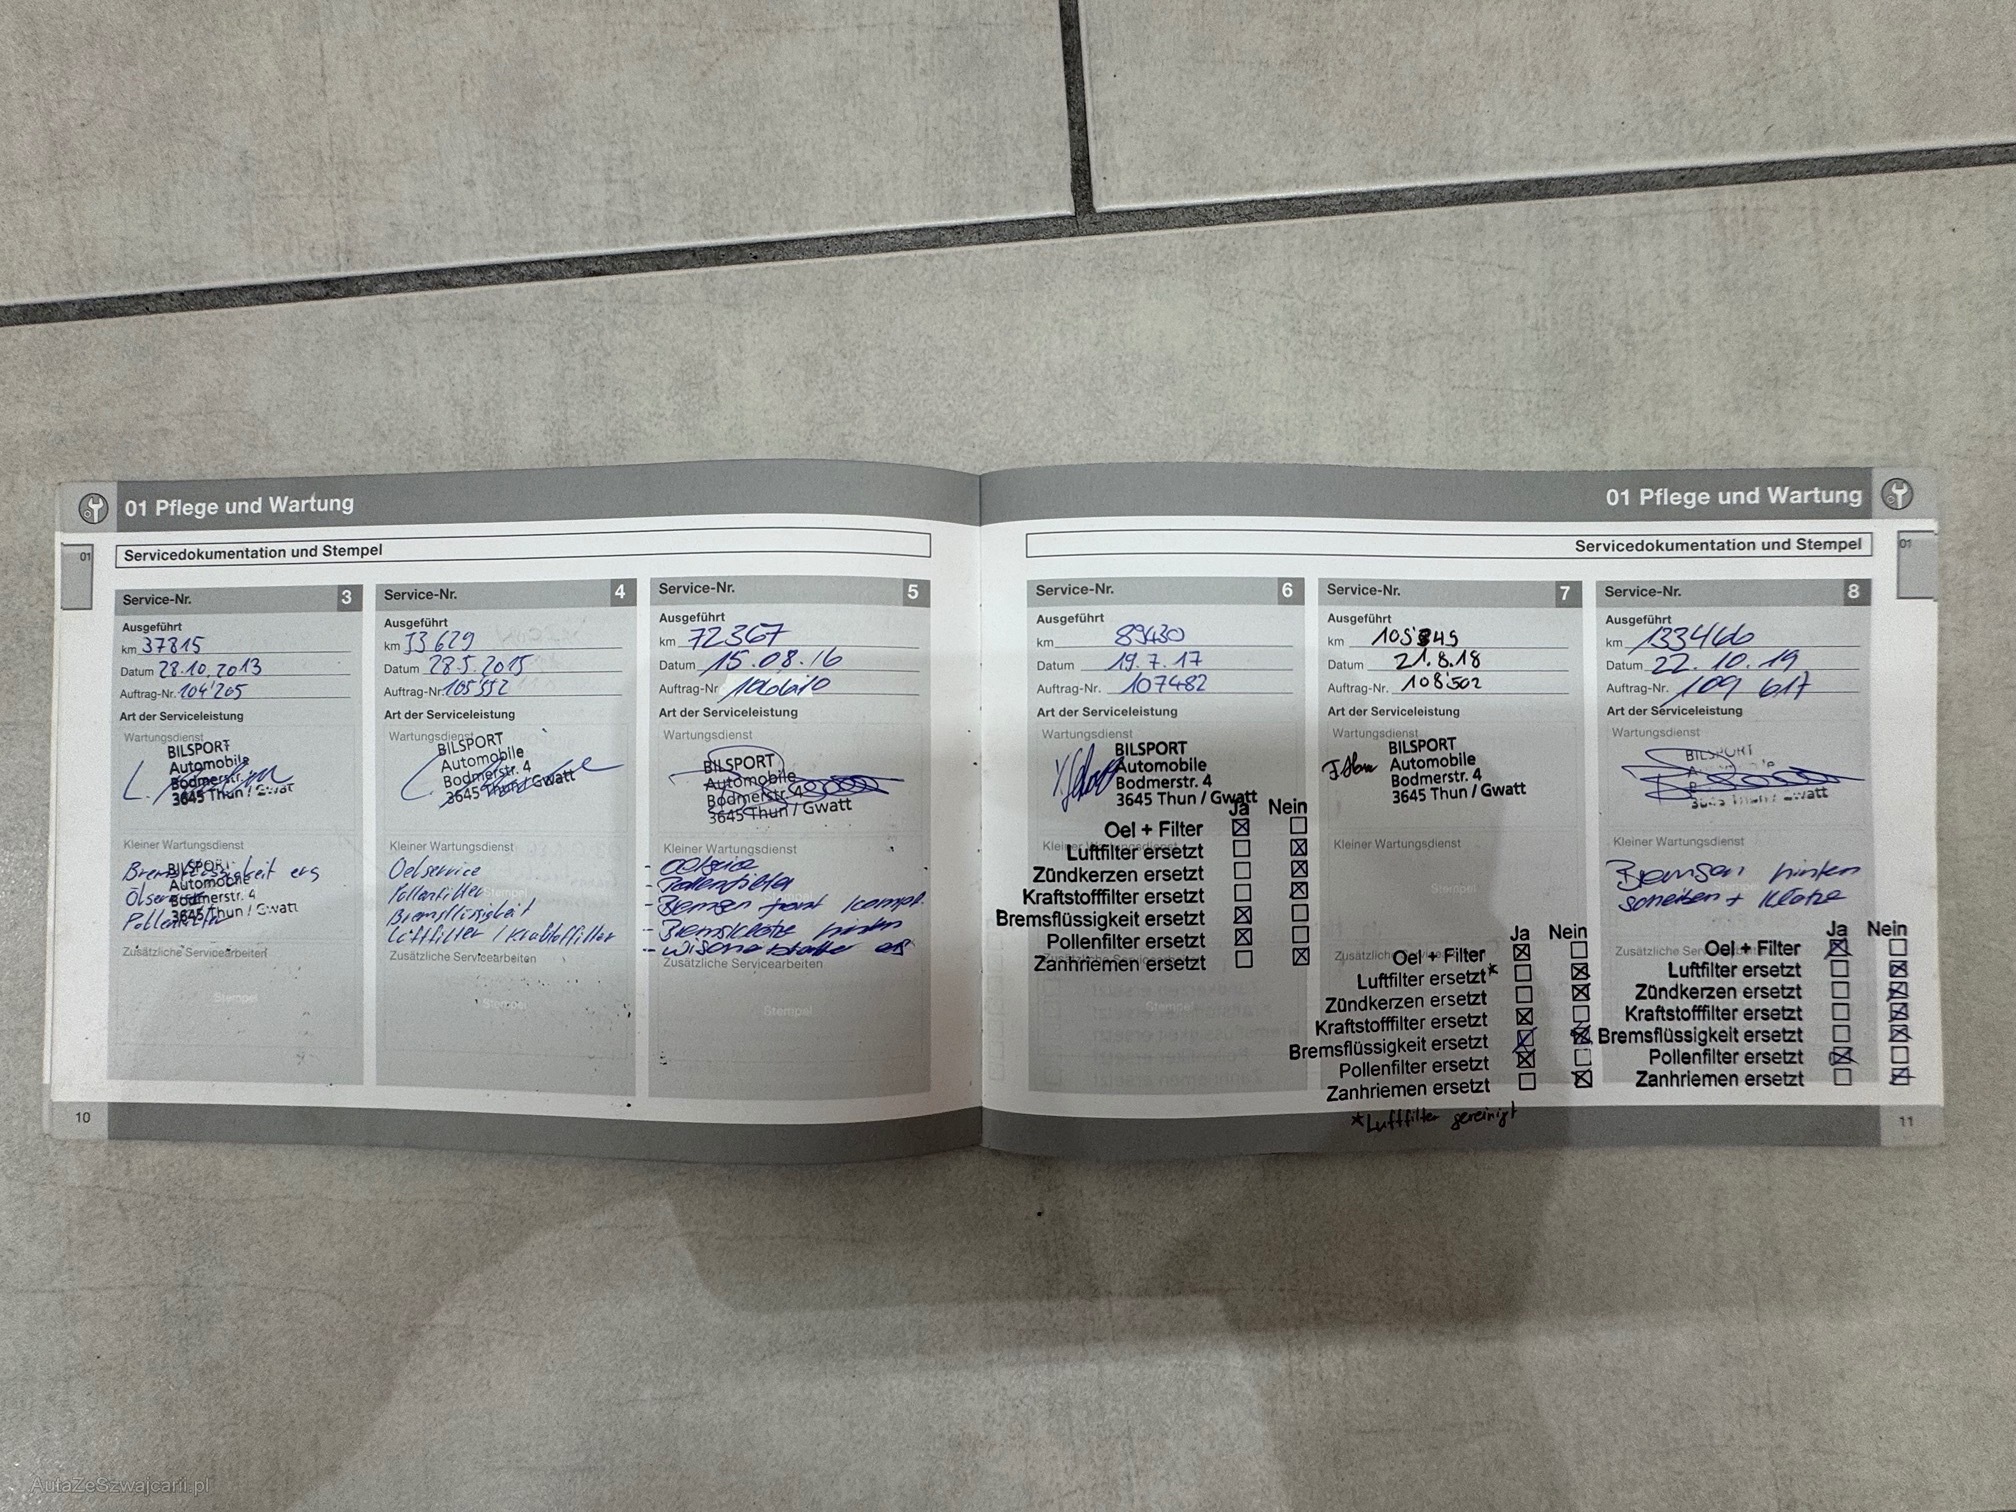 01 Pflege und Wartung
01
Servicedokumentation und Stempel
Service-Nr. 3
Ausgeführt
km 37815
Datum 28.10.2013
Auftrag-Nr. 104'205
Art der Serviceleistung
Wartungsdienst
BILSPORT
Automobile
Bodmerstr. 4
3645 Thun / Gwatt
Kleiner Wartungsdienst
BILSPORT
Automobile
Bodmerstr. 4
3645 Thun / Gwatt
Pollenfilter
Zusätzliche Servicearbeiten
Stempel
Service-Nr. 4
Ausgeführt
km 53629
Datum 28.5.2015
Auftrag-Nr. 105'552
Art der Serviceleistung
Wartungsdienst
BILSPORT
Automobile
Bodmerstr. 4
3645 Thun / Gwatt
Kleiner Wartungsdienst
Oelservice
Pollenfilter
Stempel
Bremsflüssigkeit
Luftfilter / Kraftstoffilter
Zusätzliche Servicearbeiten
Stempel
Service-Nr. 5
Ausgeführt
km 72367
Datum 15.08.16
Auftrag-Nr
Art der Serviceleistung
Wartungsdienst
BILSPORT
Automobile
Bodmerstr. 4
3645 Thun / Gwatt
Kleiner Wartungsdienst
- Oelservice
- Pollenfilter
- Bremsen front kompl.
- Bremsklötze hinten
- Wischerblätter ers
Zusätzliche Servicearbeiten
Stempel
10
01 Pflege und Wartung
01
Servicedokumentation und Stempel
Service-Nr. 6
Ausgeführt
km 89430
Datum 19.7.17
Auftrag-Nr. 107482
Art der Serviceleistung
Wartungsdienst
BILSPORT
Automobile
Bodmerstr. 4
3645 Thun / Gwatt
Ja Nein
Oel + Filter ☒ ☐
Kleiner Wartungsdienst
Luftfilter ersetzt ☐ ☒
Zündkerzen ersetzt ☐ ☒
Kraftstofffilter ersetzt ☐ ☒
Bremsflüssigkeit ersetzt ☒ ☐
Pollenfilter ersetzt ☒ ☐
Zanhriemen ersetzt ☐ ☒
Stempel
Service-Nr. 7
Ausgeführt
km 105'849
Datum 21.8.18
Auftrag-Nr. 108'502
Art der Serviceleistung
Wartungsdienst
BILSPORT
Automobile
Bodmerstr. 4
3645 Thun / Gwatt
Kleiner Wartungsdienst
Stempel
Ja Nein
Oel + Filter ☒ ☐
Luftfilter ersetzt* ☐ ☒
Zündkerzen ersetzt ☐ ☒
Kraftstofffilter ersetzt ☒ ☐
Bremsflüssigkeit ersetzt ☒ ☒
Pollenfilter ersetzt ☒ ☐
Zanhriemen ersetzt ☐ ☒
*Luftfilter gereinigt
Service-Nr. 8
Ausgeführt
km 133466
Datum 22.10.19
Auftrag-Nr. 109 617
Art der Serviceleistung
Wartungsdienst
BILSPORT
3645 Thun / Gwatt
Kleiner Wartungsdienst
Bremsen hinten
Scheiben + Klötze
Ja Nein
Oel + Filter ☒ ☐
Luftfilter ersetzt ☐ ☒
Zündkerzen ersetzt ☐ ☒
Kraftstofffilter ersetzt ☐ ☒
Bremsflüssigkeit ersetzt ☐ ☒
Pollenfilter ersetzt ☒ ☐
Zanhriemen ersetzt ☐ ☒
11
AutaZeSzwajcarii.pl